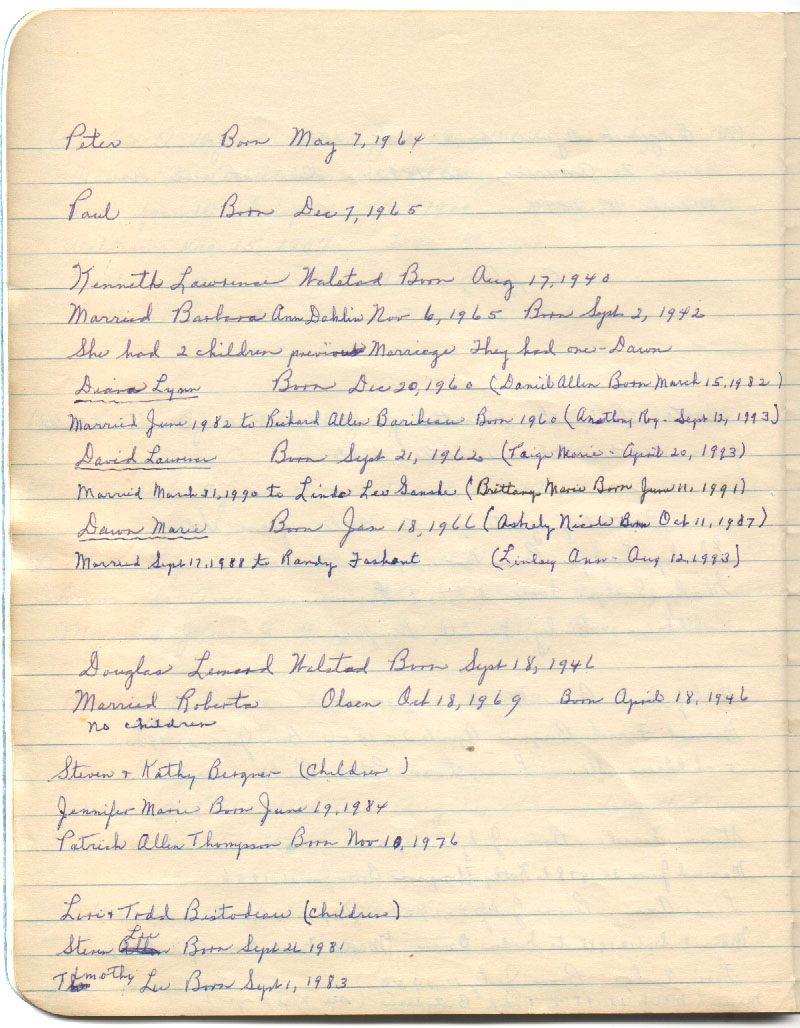 Peter Born May 7, 1964
Paul Born Dec 7, 1965
Kenneth Lawrence Walstad Born Aug 17, 1940
Married Barbara Ann Dahlin Nov 6, 1965 Born Sept 2, 1942
She had 2 children previous Marriage They had one - Dawn
Diana Lynn Born Dec 20, 1960 (Daniel Allen Born March 15, 1982)
Married June 1982 to Richard Allen Baribeau Born 1960 (Anothny Roy - Sept 12, 1993)
David Laurence Born Sept 21, 1962 (Paige Marie - April 20, 1993)
Married March 31, 1990 to Linda Lee (Brittany Marie Born June 11, 1991)
Dawn Marie Born Jan 18, 1966 (Ashely Nicole Born Oct 11, 1987)
Married Sept 17, 1988 to Randy Fashant (Linlsey Ann - Aug 12, 1993)
Douglas Lenard Walstad Born Sept 18, 1946
Married Roberta Olsen Oct 18, 1969 Born April 18, 1946
no children
Steven & Kathy Bergner (Children)
Jennifer Marie Born June 19, 1984
Patrick Allen Thompson Born Nov 10, 1976
Lori & Todd Bistodeau (Children)
Steven Lee Born Sept 26 1981
Timothy Lee Born Sept 1, 1983